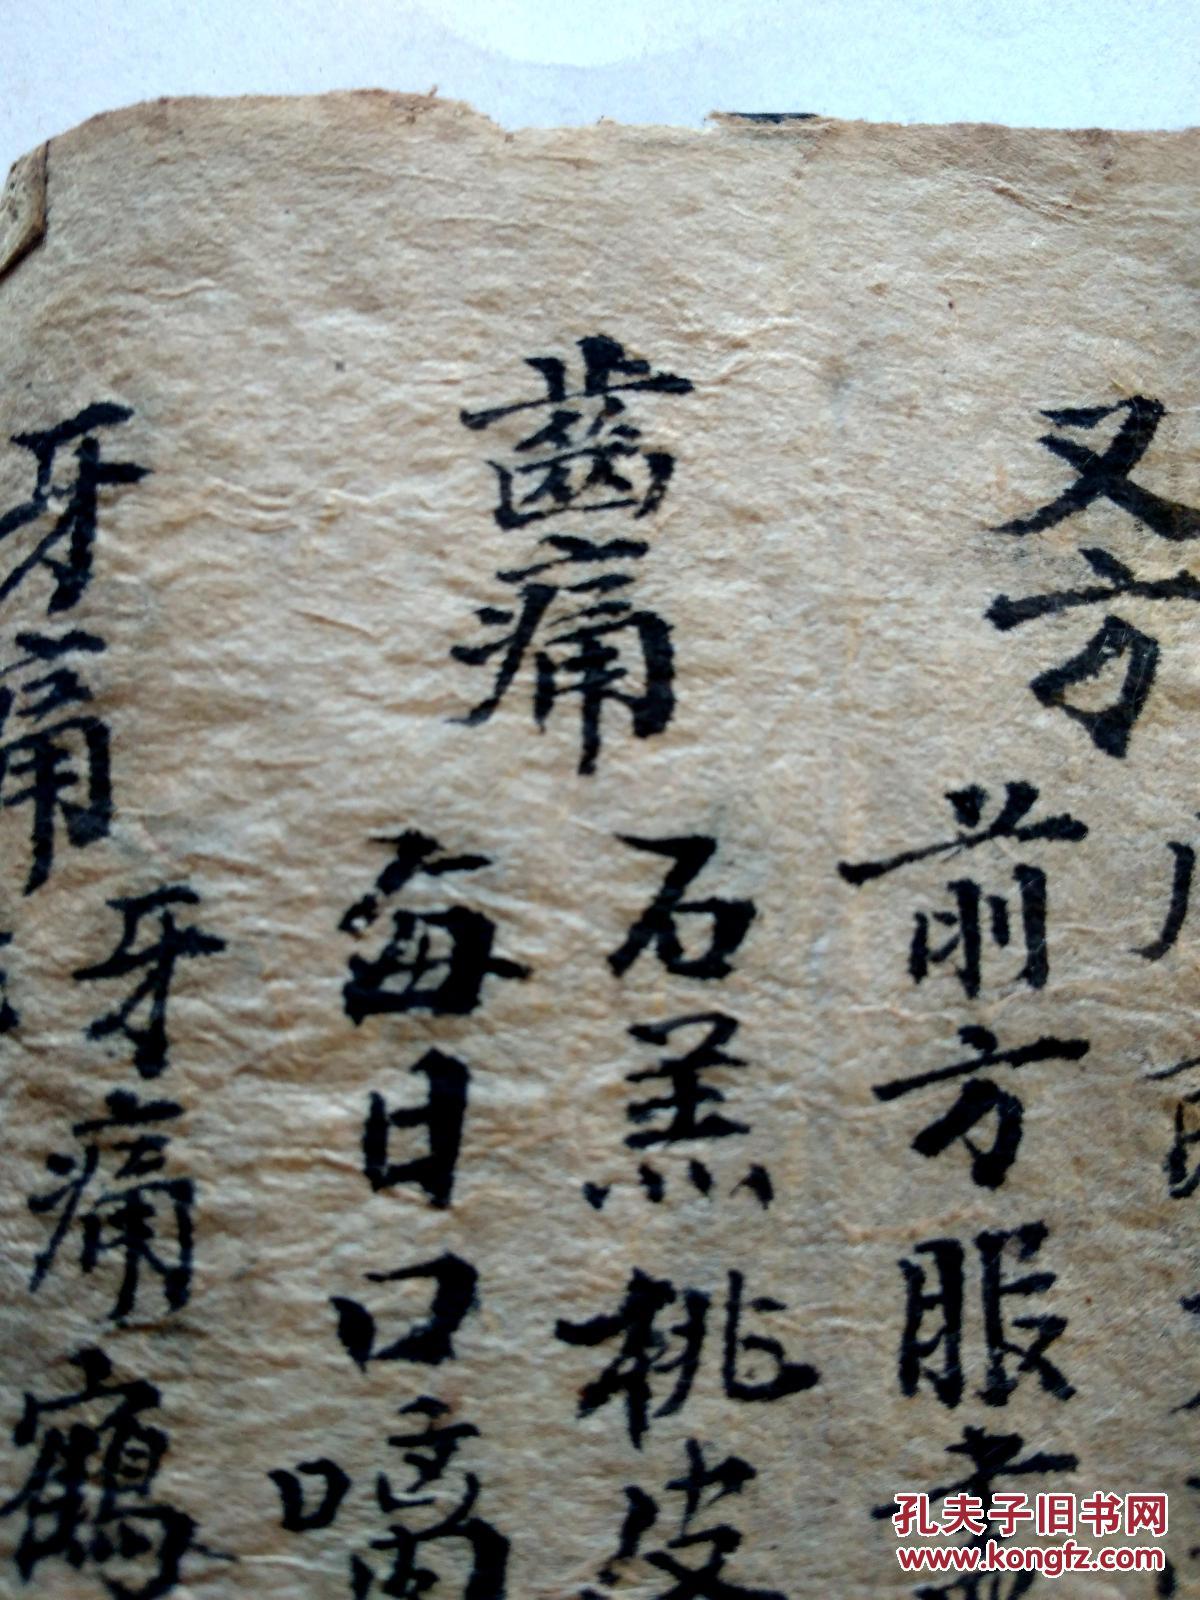 又方
前方服
齒痛
石羔桃皮
每日口嗃
牙痛
牙痛鶴
孔夫子旧书网
www.kongfz.com